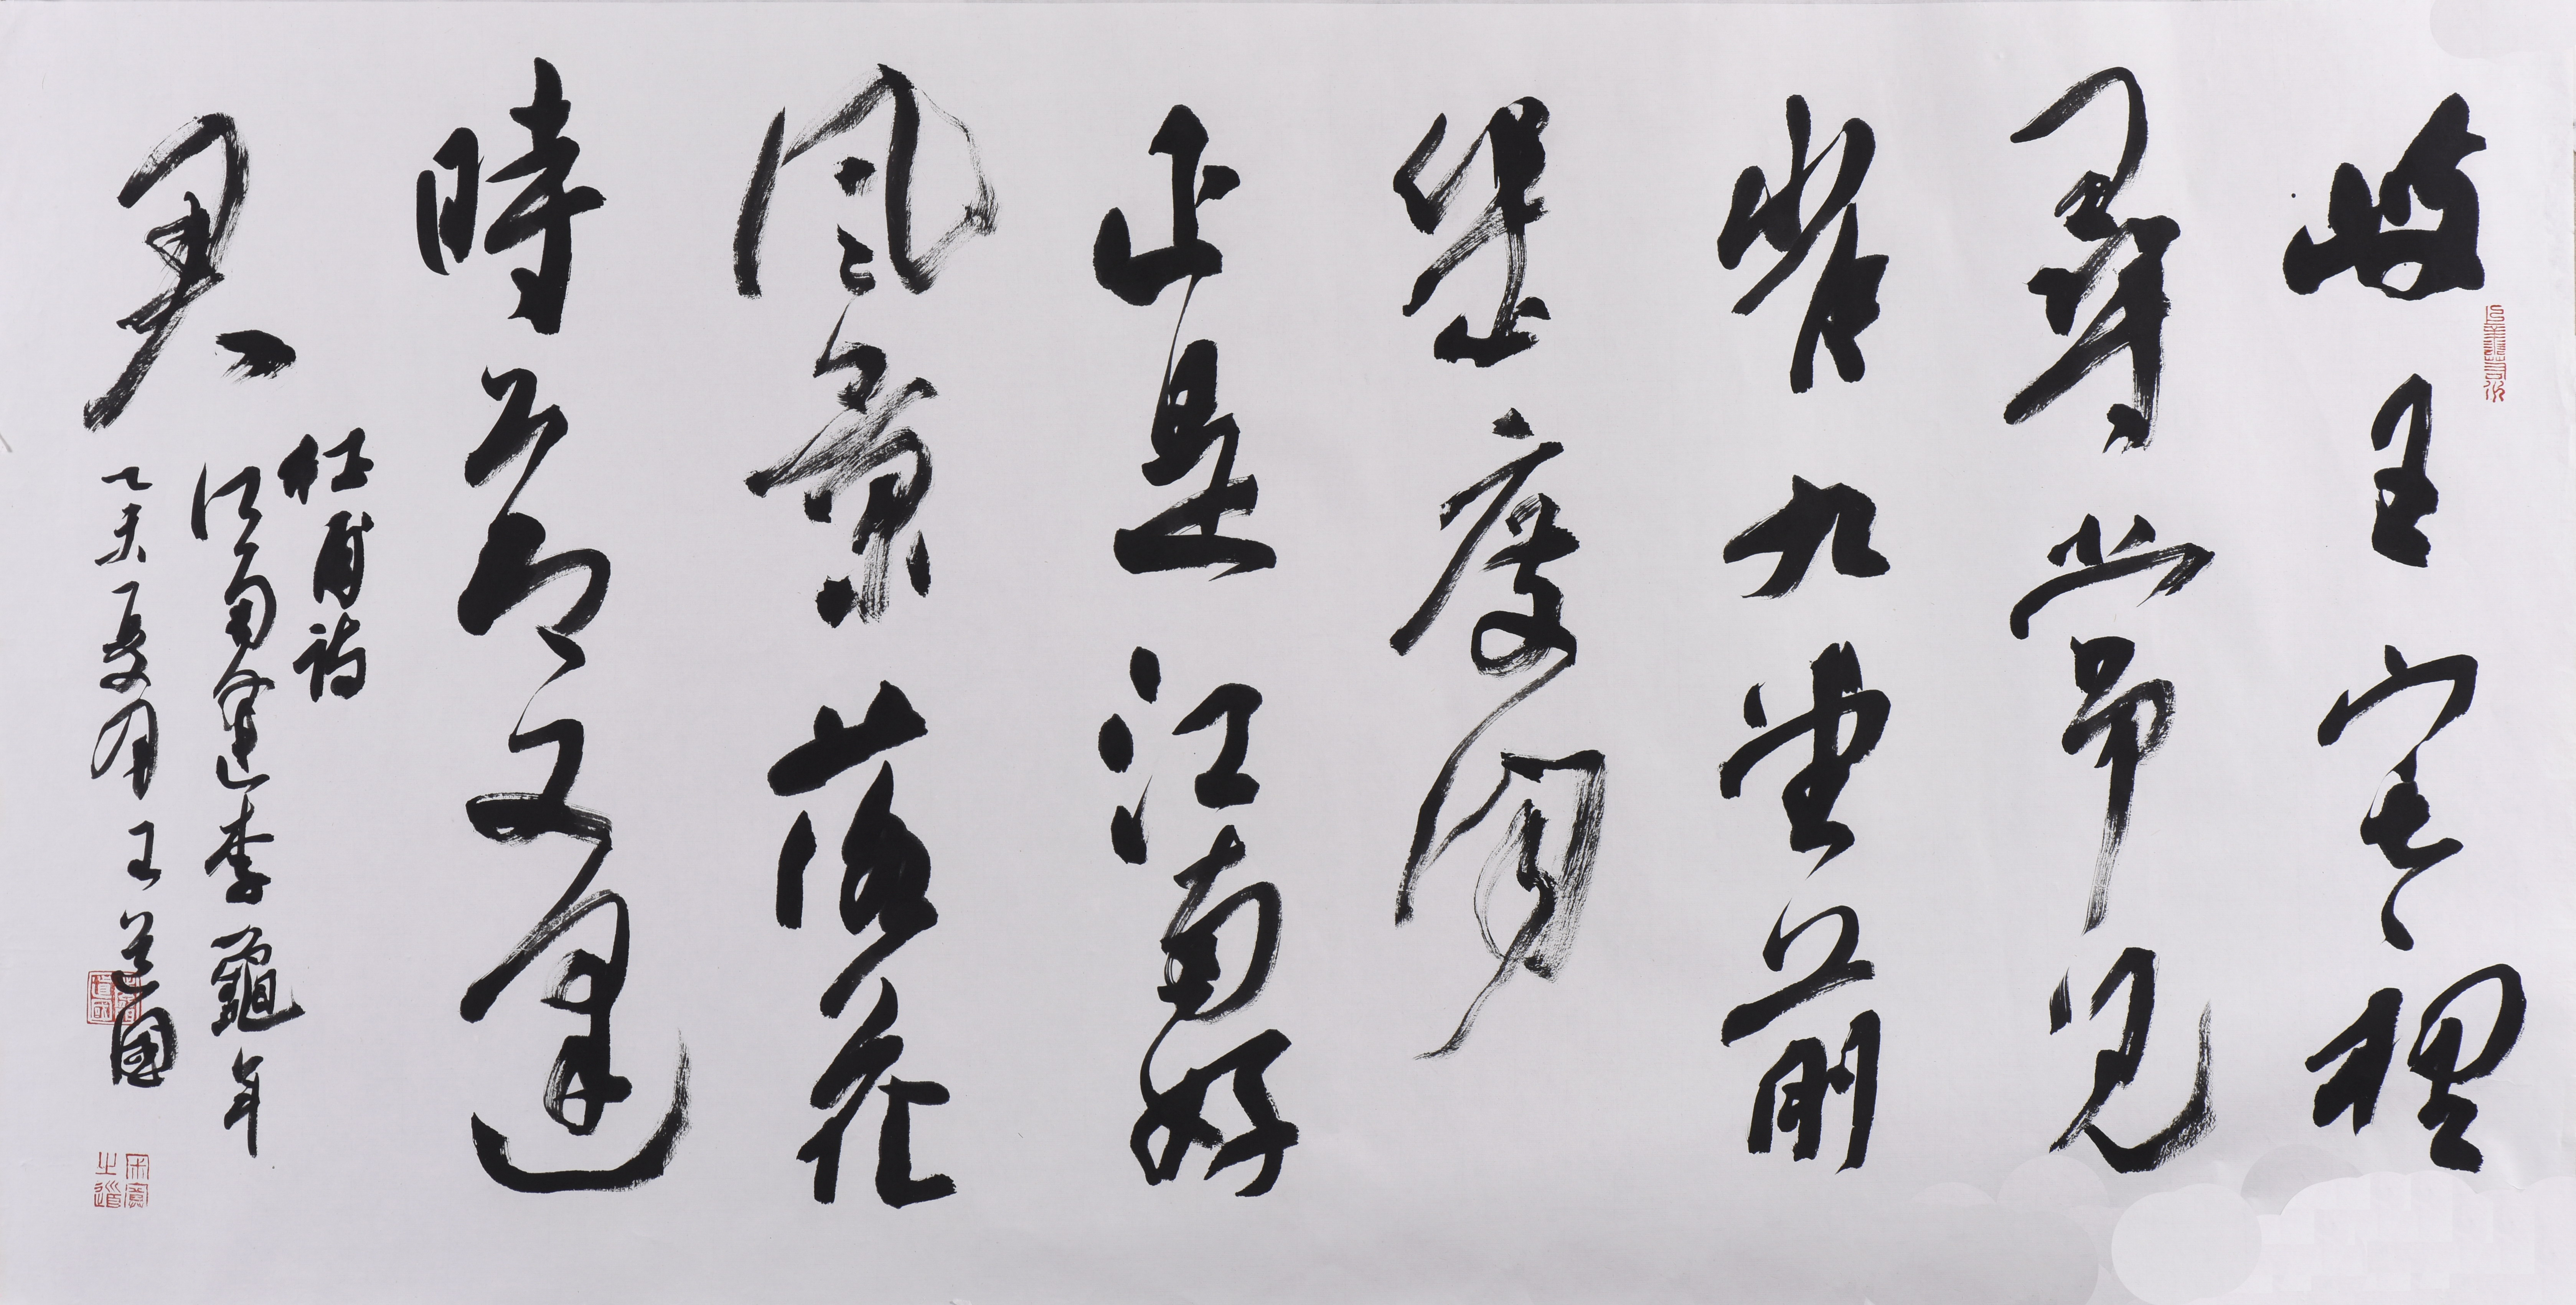 岐王宅裡
尋常見
崔九堂前
幾度聞
正是江南好
风景落花
時節又逢
君
杜甫詩
江南逢李龜年
乙亥夏月王道國